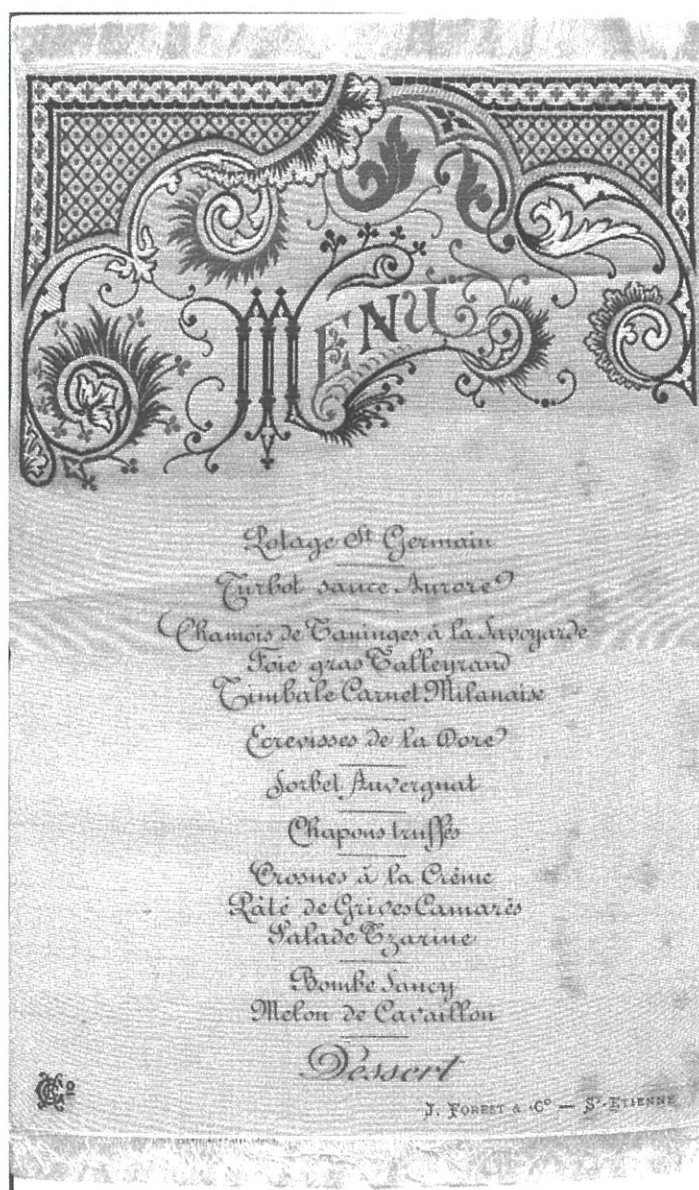 MENU
Potage St Germain
Turbot sauce Aurore
Chamois de Taninges à la Savoyarde
Foie gras Talleyrand
Timbale Carnet Milanaise
Ecrevisses de la Dore
Sorbet Auvergnat
Chapons truffés
Crosnes à la Crême
Pâté de Grives Camarès
Salade Tzarine
Bombe Sancy
Melon de Cavaillon
Dessert
J. FOREST & Cº — St-ETIENNE